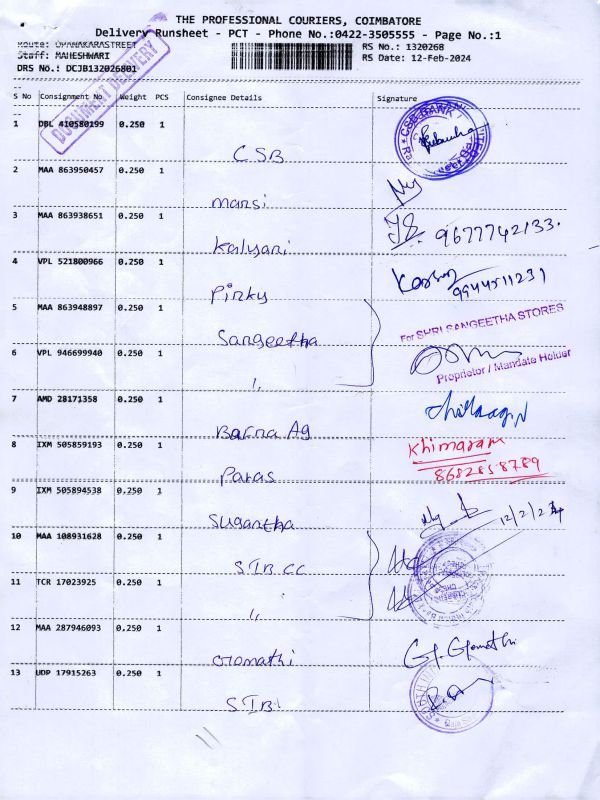 THE PROFESSIONAL COURIERS, COIMBATORE
Delivery Runsheet - PCT - Phone No.:0422-3505555 - Page No.:1
Route: OPANAKARASTREET RS No.: 1320268
Staff: MAHESHWARI RS Date: 12-Feb-2024
DRS No.: DCJB132026801
DOCUMENT DELIVERY
S No Consignment No Weight PCS Consignee Details Signature
1 DBL 410580199 0.250 1 CSB
CSB BANK
2 MAA 863950457 0.250 1 mansi
3 MAA 863938651 0.250 1 Kalyani 9677742133.
4 VPL 521800966 0.250 1 Pinky 9944511231
5 MAA 863948897 0.250 1 Sangeetha
For SHRI SANGEETHA STORES
6 VPL 946699940 0.250 1 ",
Proprietor / Mandate Holder
7 AMD 28171358 0.250 1 Barna Ag
8 IXM 505859193 0.250 1 Paras Khimaram
8682858789
9 IXM 505894538 0.250 1 Sugantha
10 MAA 108931628 0.250 1 SIB CC
11 TCR 17023925 0.250 1 ",
12 MAA 287946093 0.250 1 Gomathi G. Gomathi
13 UDP 17915263 0.250 1 SIB